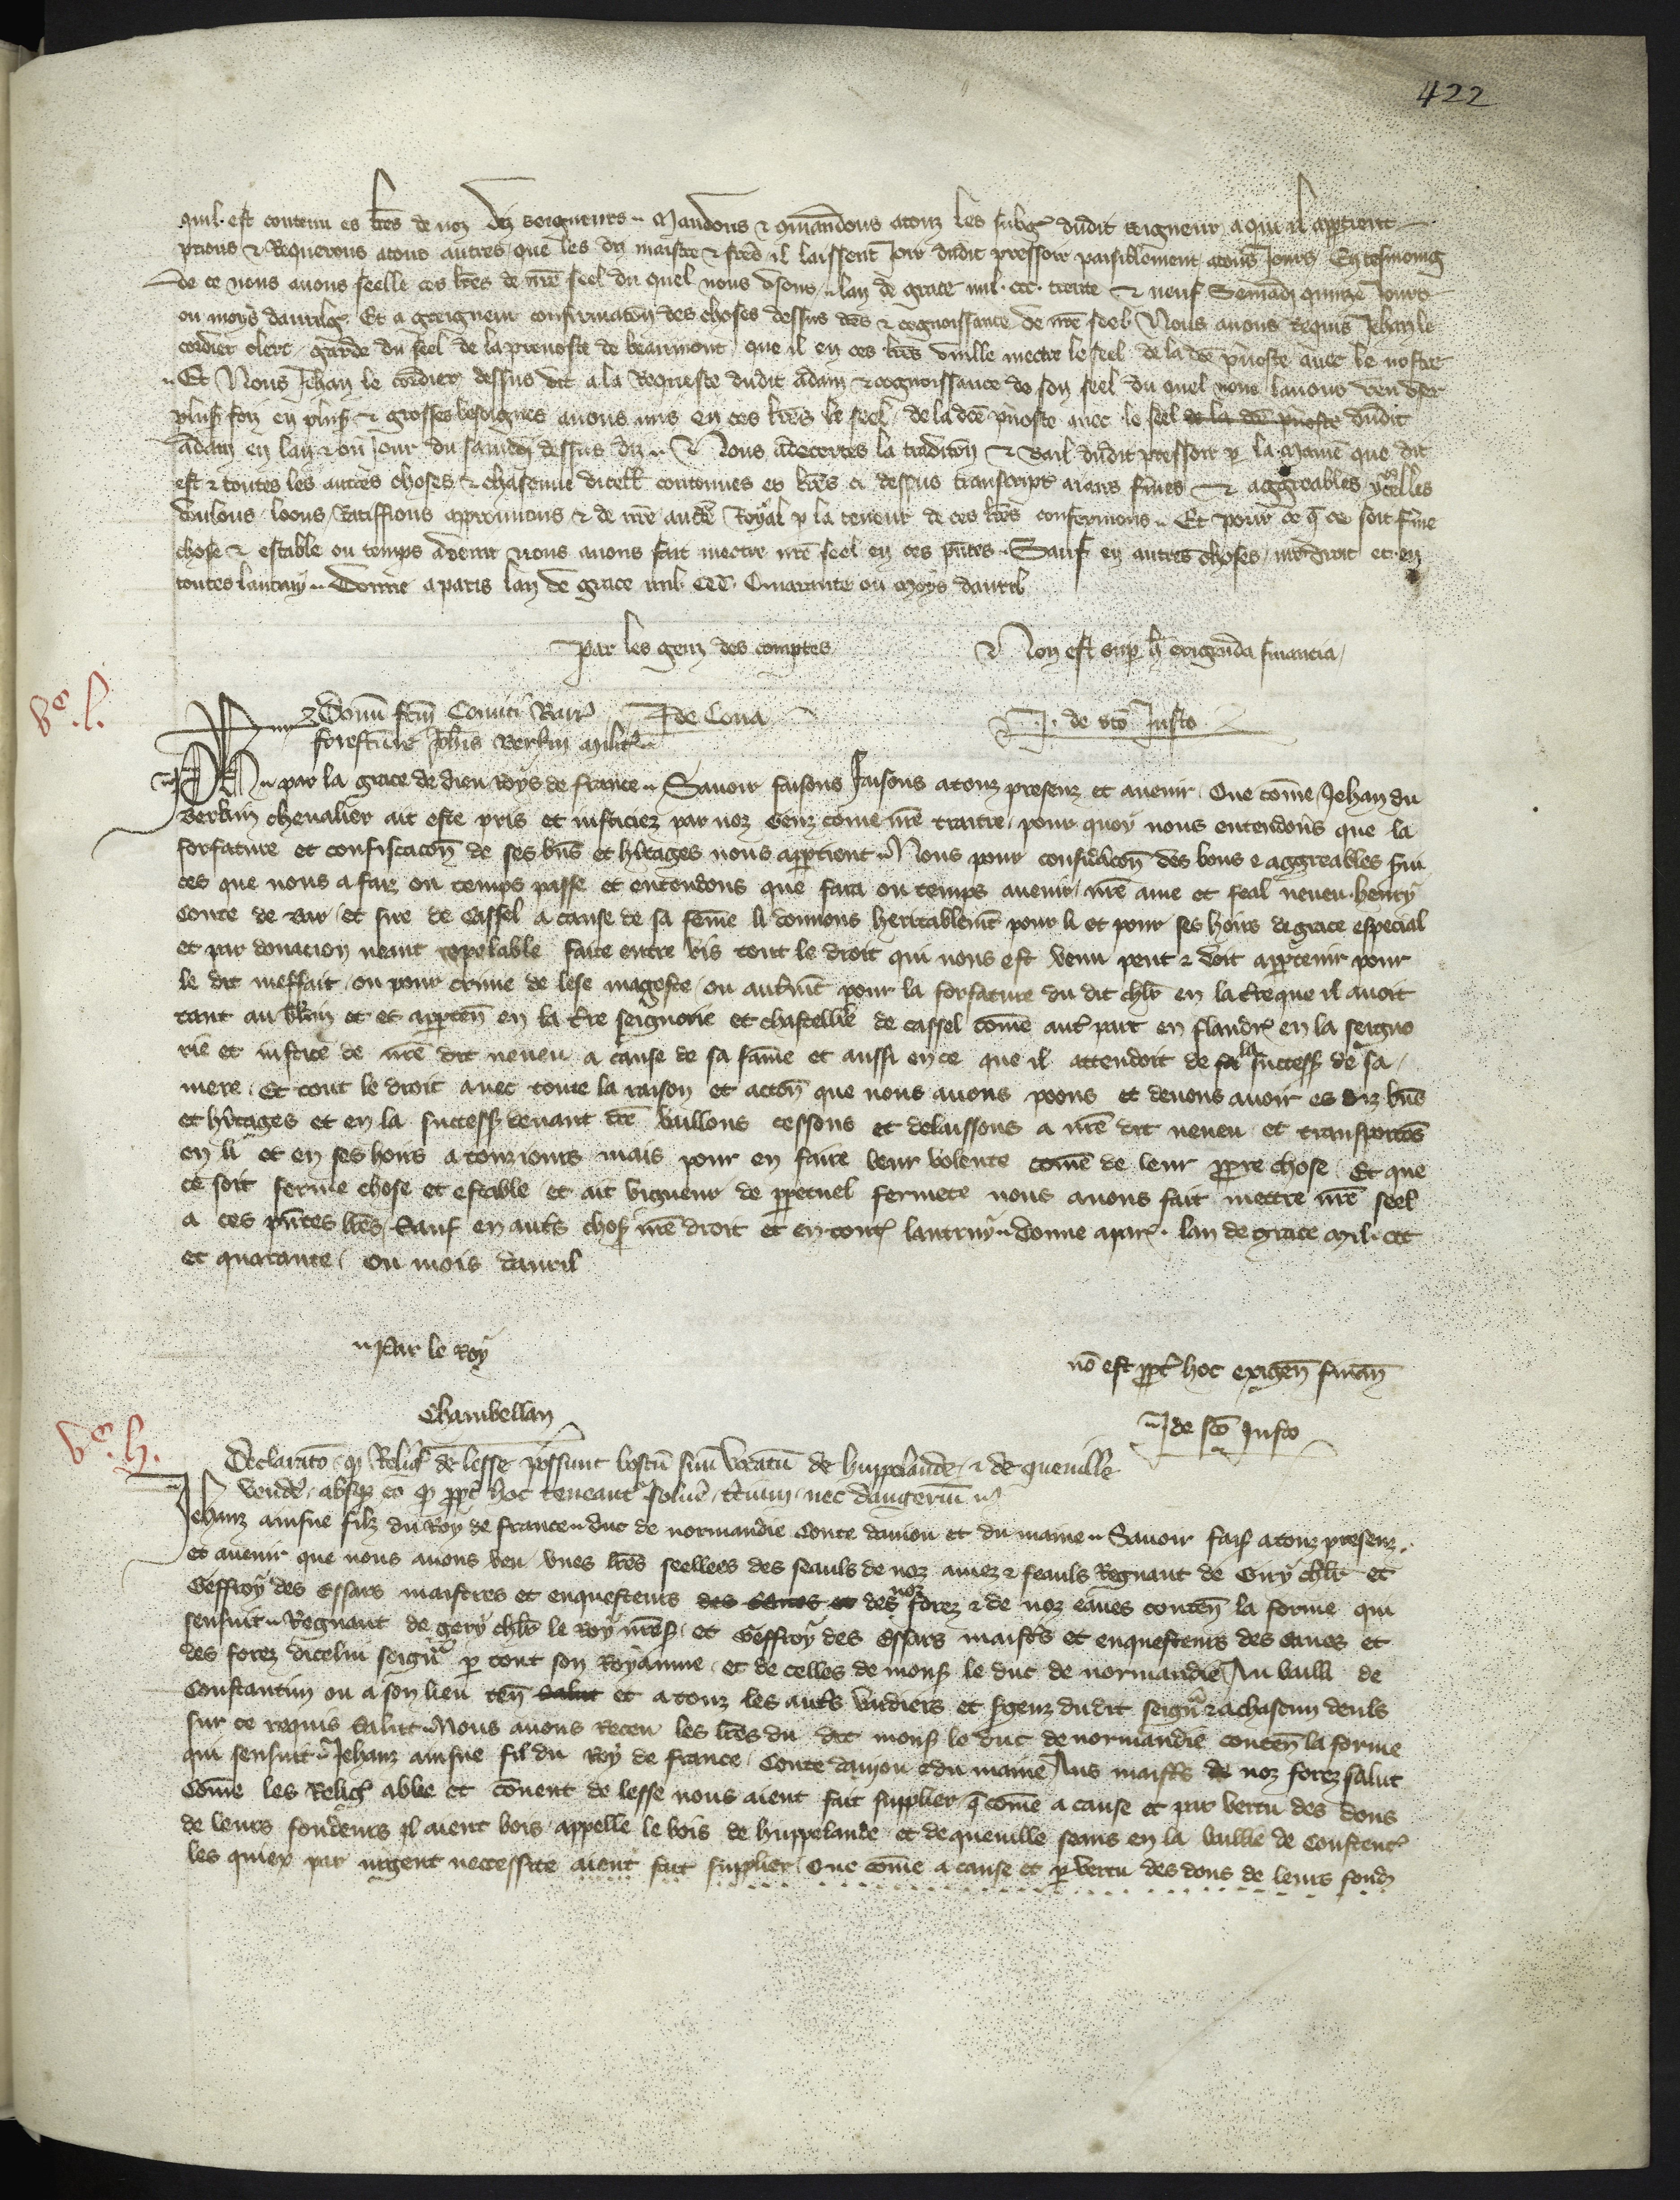 422
quil est contenu es lres de noz diz seigneurs. Mandons & comandons a touz les subgz dudit seigneur a qui il appartient
prions & Requerons a touz autres que les diz maistre & freres il laissent Joir dudit pressoir paisiblement a touz Jours En tesmoing
de ce nous avons seelle ces lres de nre seel du quel nous usons lan de grace mil ccc trente & neuf Samedi quinze Jours
ou moys davril Et a greigneur confirmacon des choses dessus dces & cognoissance de nre seel Nous avons Requis Jehan le
cordier clerc garde du seel de la prevoste de beaumont que il en ces lres vuille mectre le seel de la dce pvoste avec le nostre
Et Nous Jehan le cordier dessus dit a la Requeste dudit adam & cognoissance de son seel du quel nous lavons veu user
plus foiz en plus & grosses besoignes avons mis en ces lres le seel de la dce pvoste avec le seel de la dce pvoste dudit
adam en lan & ou Jour du samedi dessus diz Nous adecertes la tradicon & bail dudit pressoir p la maniere que dit
est & toutes les autres choses & chascune dicelles contenues es lres ci dessus transcriptes aians fermes & aggreables ycelles
voulons loons Ratiffions approuvons & de nre aucte Royal p la teneur de ces lres confermons Et pour ce q ce soit ferme
chose & estable ou temps avenir nous avons fait mectre nre seel en ces pntes Sauf en autres choses nre droit et en
toutes lautruy Donne a paris lan de grace mil ccc Quarante ou moys davril
Par les genz des comptes
Non est sup h exigenda financia
Vo. l.
Donum fcm Comiti Barr
de Cona
J. de sco Justo
forefacture Johis Berkin milit
Ph par la grace de dieu Roys de france Savoir faisons faisons a touz presenz et avenir Que come Jehan du
Berkin chevalier ait este pris et iusticiez par noz genz come nre traitre pour quoy nous entendons que la
forfaiture et confiscacon de ses bns et hitages nous appartient Nous pour consideracon des bons & aggreables servi
ces que nous a faiz ou temps passe et entendons que fara ou temps avenir nre ame et feal neveu henry
Conte de Bar et sire de Cassel a cause de sa feme li donnons heritablement pour li et pour ses hoirs de grace especial
et par donacion neant rapelable faite entre vis tout le droit qui nous est venu peut & doit appartenir pour
le dit meffait ou pour crime de lese mageste ou autrement pour la forfaiture du dit chlr en la terre que il avoit
tant au berkin et es apparten en la tre seignorie et chastellerie de cassel come autre part en flandres en la seigno
rie et iustice de nre dit neveu a cause de sa fame et aussi en ce que il attendoit de sa la success de sa
mere Et tout le droit avec toute la raison et action que nous avons poons et devons avoir es diz bns
et hitages et en la success devant dce baillons cessons et delaissons a nre dit neveu et transportons
en li et en ses hoirs a touziours mais pour en faire leur volente come de leur propre chose Et que
ce soit ferme chose et estable et ait vigueur de perpetuel fermete nous avons fait mettre nre seel
a ces pntes lres Sauf en autres choses nre droit et en toutes lautruy Donne a par lan de grace mil ccc
et quarante ou mois davril
Par le Roy
no est ppt hoc exigen finan
Chambellan
J de sco Justo
Vo. h.
Declarato q Religi de lesse possunt boscu suu vocatu de huppelande & de quenille
vendere absq eo q ppt hoc teneant solvere terciu nec dangeriu
Jehanz ainsne filz du Roy de france duc de normandie Conte danjou et du maine Savoir fais a touz presenz
et avenir que nous avons veu unes lres seellees des seauls de noz amez & feauls Regnaut de Giry chlr et
Geffroy des Essars maistres et enquesteurs des eaues et des noz forez & de noz eaues conten la forme qui
sensuit Regnaut de gery chlr le Roy nres et Geffroy des Essars maistres et enquesteurs des eaues et
des forez dicelui seignr p tout son Royaume et de celles de mons le duc de normandie Au bailli de
Constantin ou a son lieu ten salut et a touz les autres verdiers et sgenz dudit seignr & a chascun deuls
sur ce requis salut Nous avons Receu les lres du dit mons le duc de normandie conten la forme
qui sensuit Jehanz ainsne fil du Roy de france Conte danjou & du maine Aus maistres de noz forez salut
Come les Relig abbe et couvent de lesse nous aient fait supplier q come a cause et par vertu des dons
de leurs fondeurs il aient bois appelle le bois de huppelande et de quenille seans en la baillie de Constent
les quiex par urgent necessite aient fait supplier Que come a cause et p vertu des dons de leurs fond